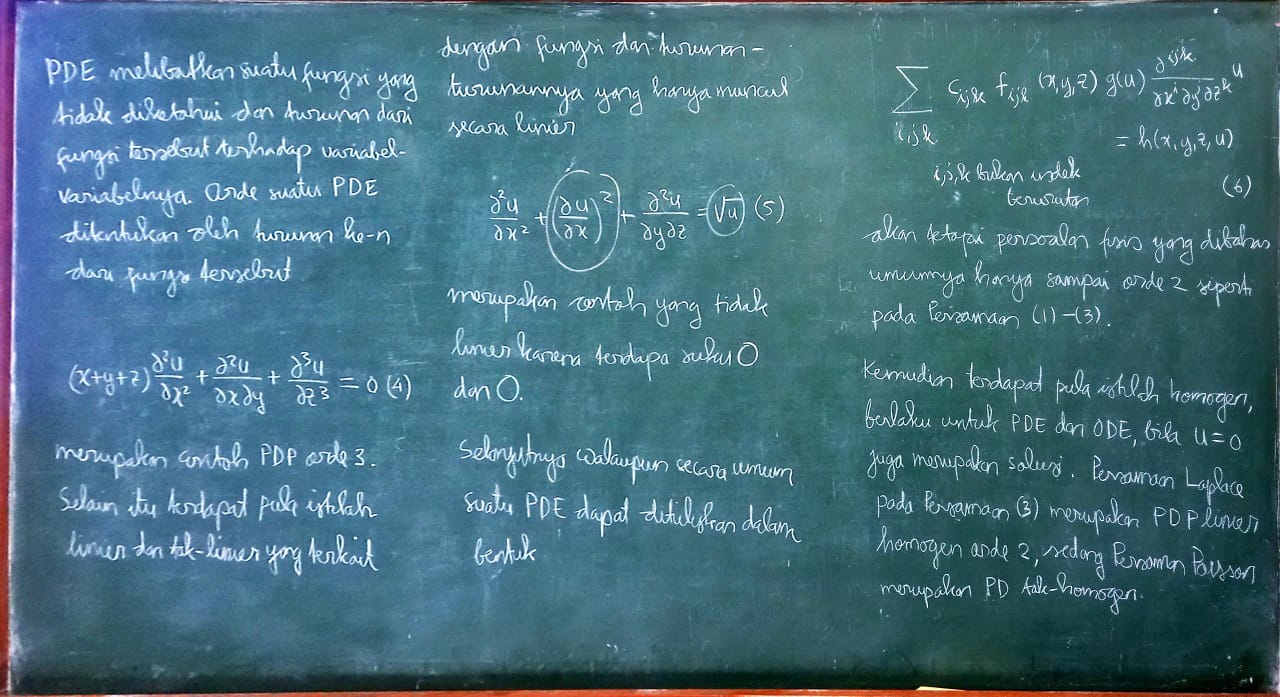 PDE melibatkan suatu fungsi yang
tidak diketahui dan turunan dari
fungsi tersebut terhadap variabel-
variabelnya. Orde suatu PDE
ditentukan oleh turunan ke-n
dari fungsi tersebut
(x+y+z) ∂²u/∂x² + ∂²u/∂x∂y + ∂³u/∂z³ = 0 (4)
merupakan contoh PDP orde 3.
Selain itu terdapat pula istilah
linier dan tak-linier yang terkait
dengan fungsi dan turunan-
turunannya yang hanya muncul
secara linier
∂²u/∂x² + (∂u/∂x)² + ∂²u/∂y∂z = √u (5)
merupakan contoh yang tidak
linier karena terdapa suku O
dan O.
Selanjutnya walaupun secara umum
suatu PDE dapat dituliskan dalam
bentuk
∑ C_ijk f_ijk (x,y,z) g(u) ∂^ijk/∂x^i ∂y^j ∂z^k u
i,j,k
= h(x,y,z,u)
i,j,k bukan indek (6)
berurutan
akan tetapi persoalan fisis yang dibahas
umumnya hanya sampai orde 2 seperti
pada Persamaan (1)-(3).
Kemudian terdapat pula istilah homogen,
berlaku untuk PDE dan ODE, bila u=0
juga merupakan solusi. Persamaan Laplace
pada Persamaan (3) merupakan PDP linier
homogen orde 2, sedang Persamaan Poisson
merupakan PD tak-homogen.